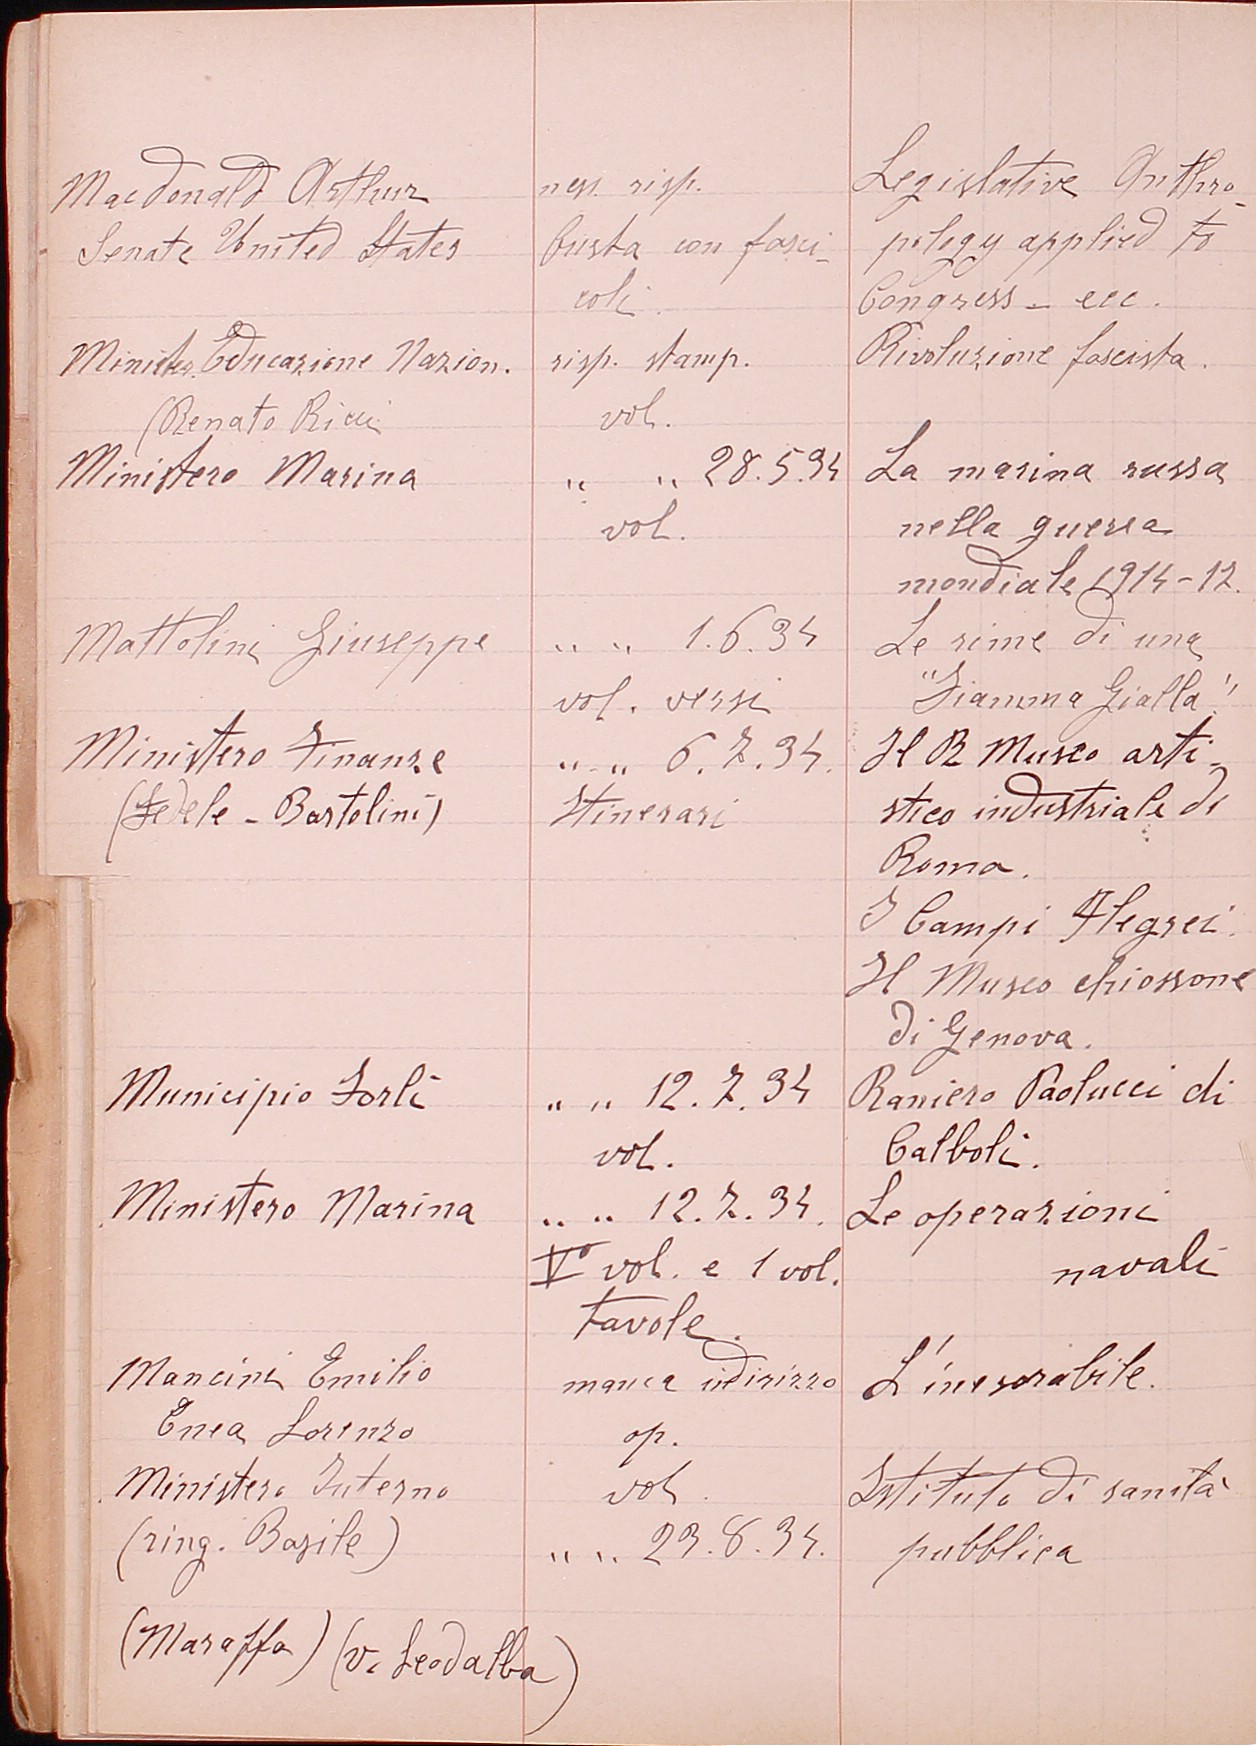 Macdonald Arthur ness. risp. Legislative Anthro-
Senate United States busta con fasci- pology applied to
coli. Congress - ecc.
Minister. Educazione Nazion. risp. stamp. Rivoluzione fascista.
(Renato Ricci vol.
Ministero Marina " " 28.5.34 La marina russa
vol. nella guerra
mondiale 1914-17.
Mattolini Giuseppe " " 1.6.34 Le rime di una
vol. versi "Fiamma Gialla".
Ministero Finanze " " 6.7.34. Il R Museo arti-
(Fedele - Bartolini) Itinerari stico industriale di
Roma.
I Campi Flegrei.
Il Museo chiossone
di Genova.
Municipio Forlì " " 12.7.34 Raniero Paolucci di
vol. Calboli.
Ministero Marina " " 12.7.34. Le operazioni
V° vol. e 1 vol. navali
tavole.
Mancini Emilio manca indirizzo L'inesorabile.
Enea Lorenzo op.
Ministero Interno vol. Istituto di sanità
(ring. Basile) " " 23.8.34. pubblica
(Maraffa) (v. Leodalba)